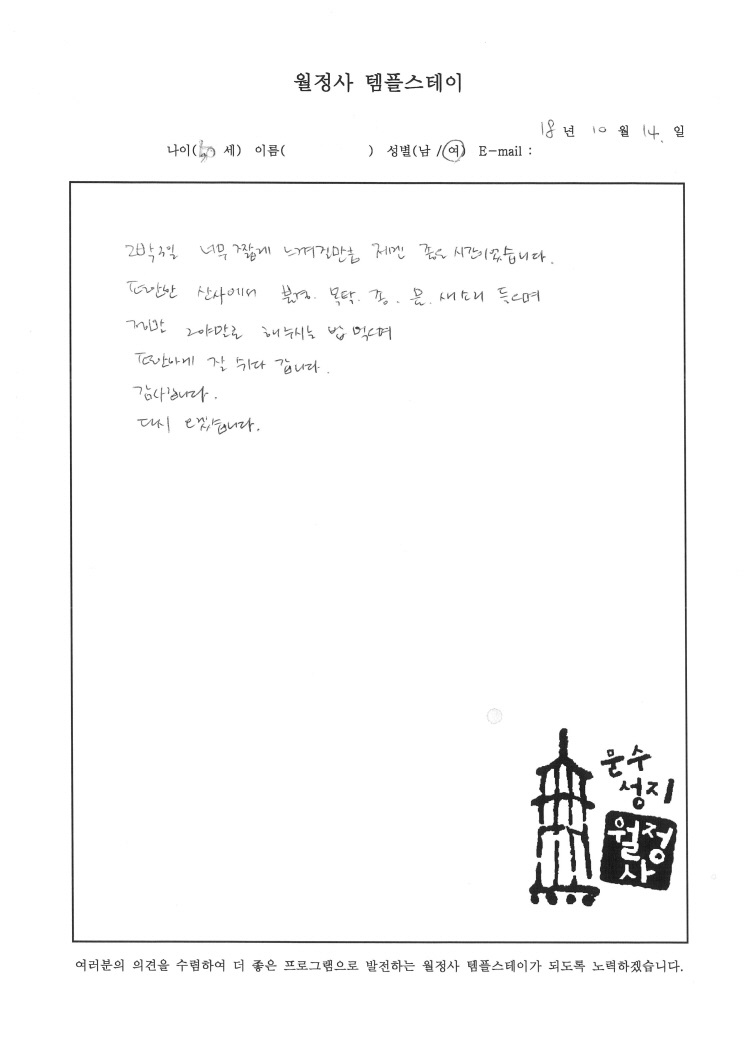 월정사 템플스테이
18년 10월 14. 일
나이( 세) 이름( ) 성별(남 / 여) E-mail :
2박3일 너무 짧게 느껴질만큼 저겐 좋은 시간이었습니다.
편안한 산사에서 불경. 목탁. 종. 물. 새소리 듣으며
해주시는 밥 먹으며
편안하게 잘 쉬다 갑니다.
감사합니다.
다시 오겠습니다.
문수
성지
월정
사
여러분의 의견을 수렴하여 더 좋은 프로그램으로 발전하는 월정사 템플스테이가 되도록 노력하겠습니다.